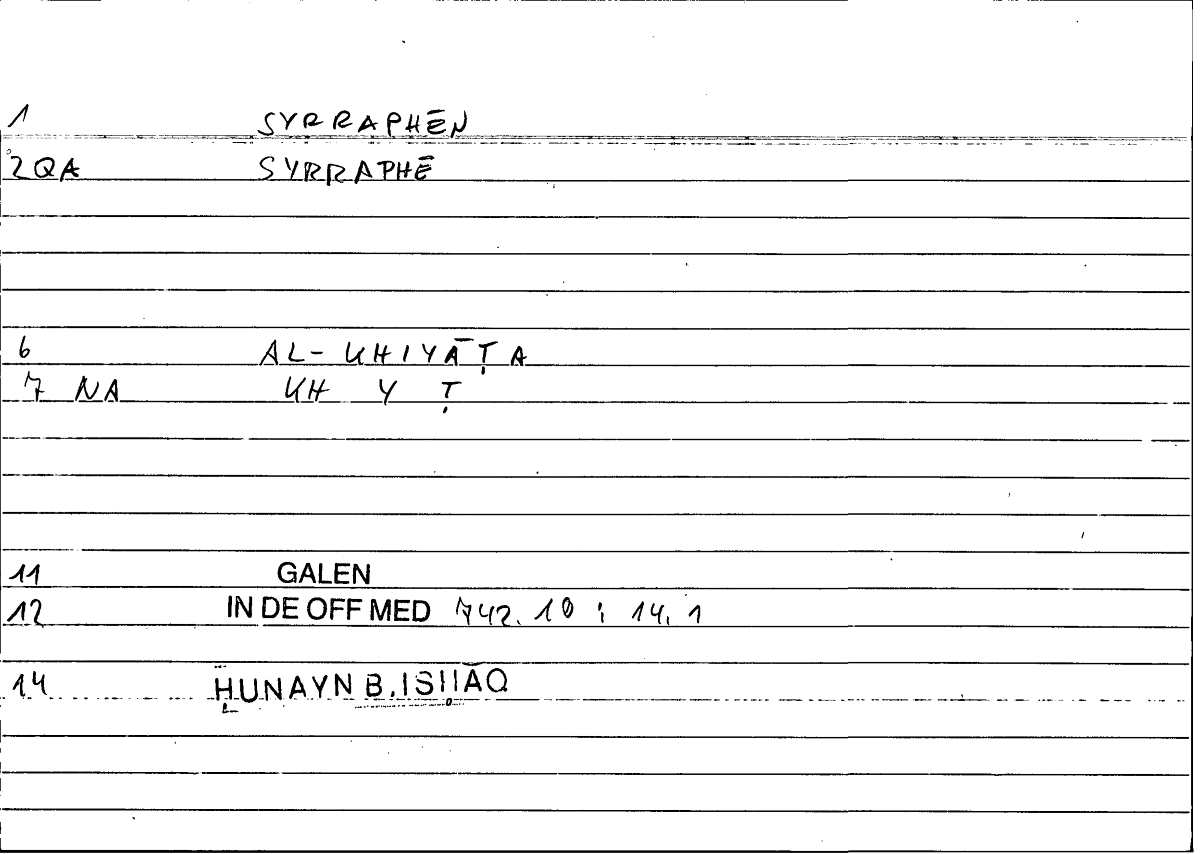 1 SYRRAPHĒN
2QA SYRRAPHĒ
6 AL-KHIYĀṬA
7 NA KH Y Ṭ
11 GALEN
12 IN DE OFF MED 742.10 ; 14.1
14 ḤUNAYN B.ISḤĀQ